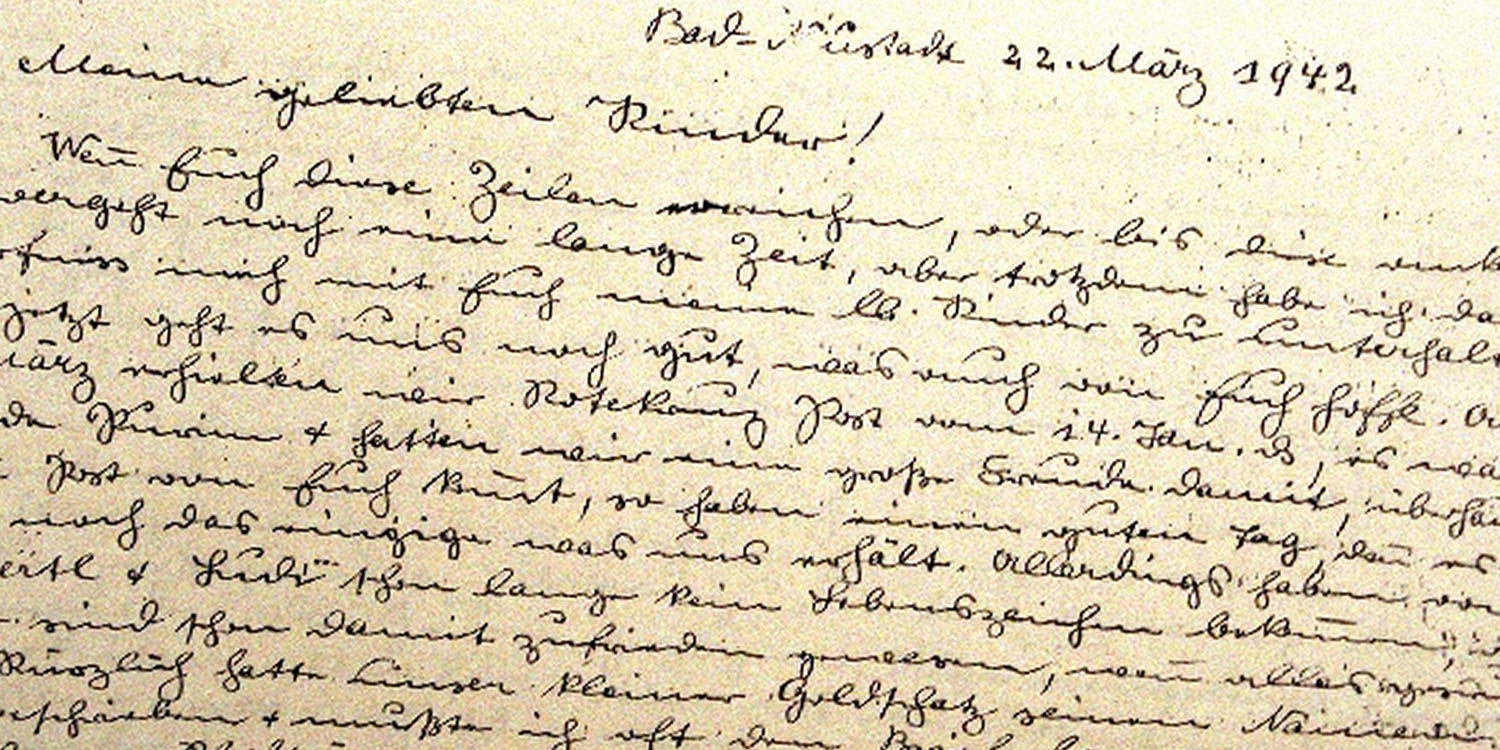 Bad-Neustadt 22. März 1942
Meine geliebten Kinder!
Weñ Euch diese Zeilen erreichen, oder bis diese
vergeht noch eine lange Zeit, aber trotzdem habe ich da
mich mit Euch meine lb. Kinder zu unterhalt
jetzt geht es uns noch gut, was auch von Euch hoffe.
März erhielten wir Rotekreuz Post vom 14. Jan. ds, es wa
Purim & hatten wir eine große Freude damit, überha
Post von Euch kom̄t, so haben einen guten Tag, deñ es
noch das einzige was uns erhält. Allerdings haben von
& Ludi schon lange kein Lebenszeichen bekom̄en,
sind schon damit zufrieden gewesen, weñ alles
Kürzlich hatte Unser kleiner Goldschatz seinen Namen
geschrieben & mußte ich oft den